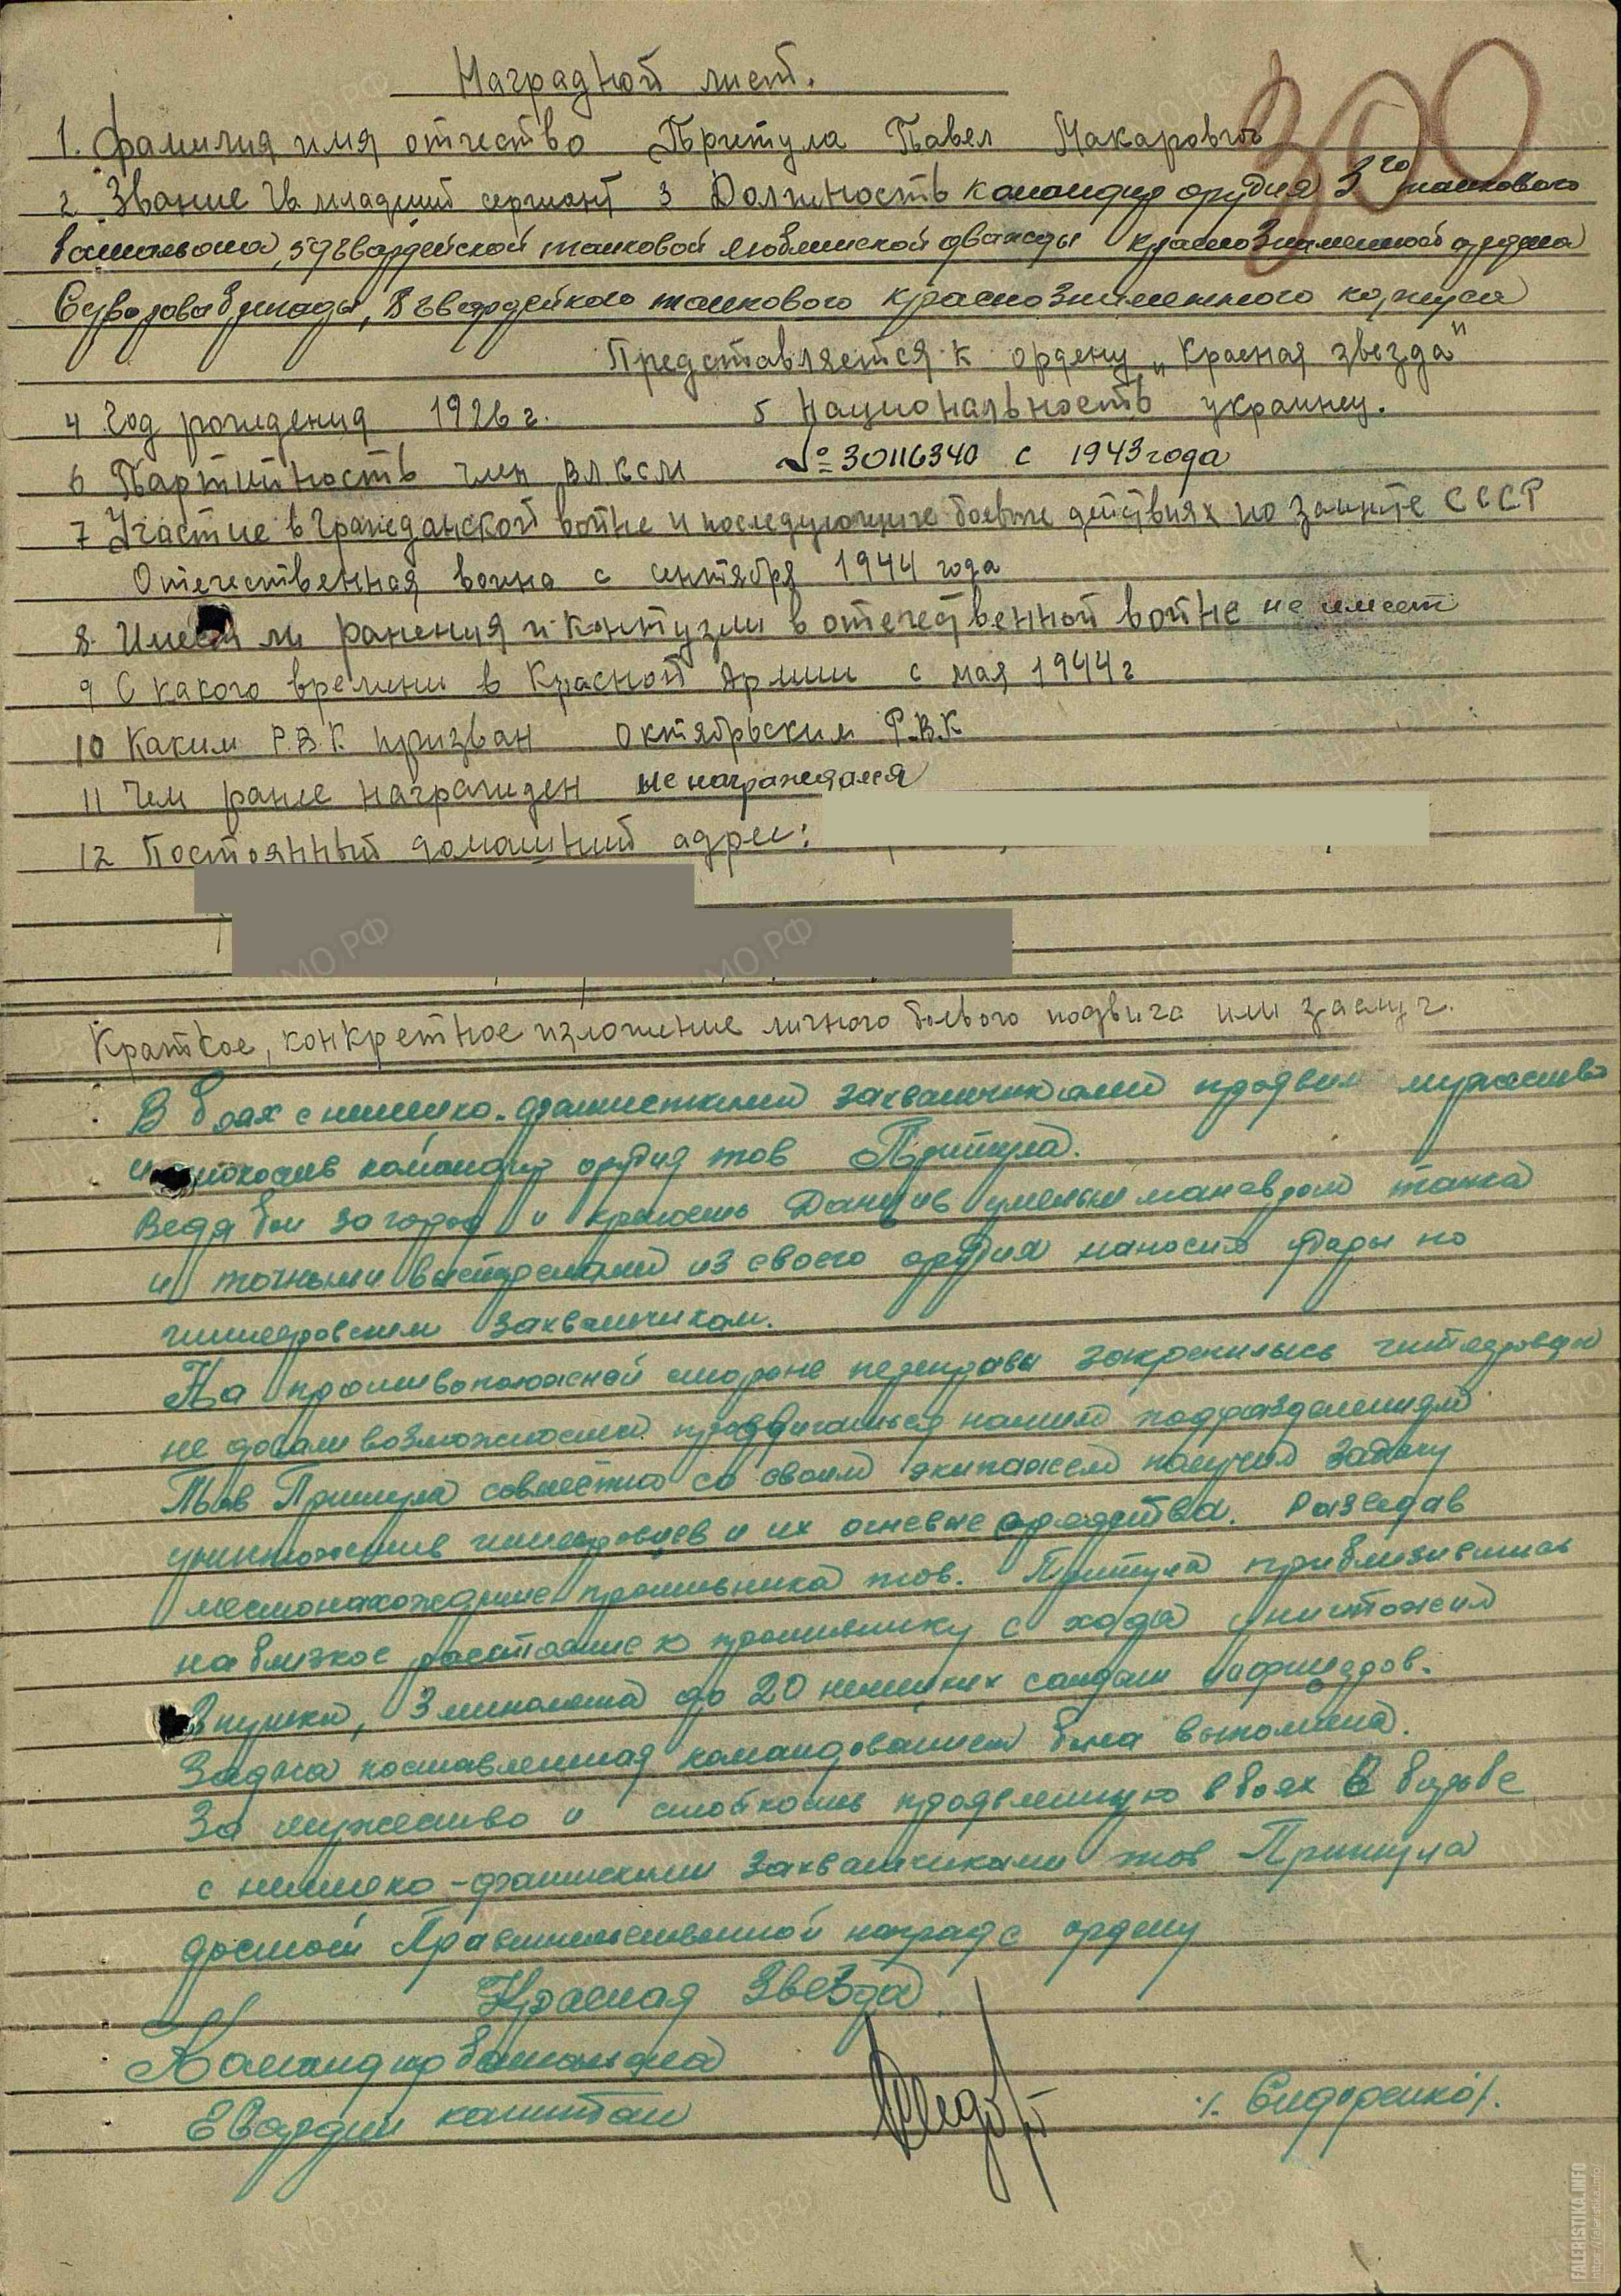 Наградной лист.
300
1. Фамилия имя отчество Притула Павел Макарович
2 Звание Гв младший сержант 3 Должность командир орудия 3го танкового
батальона, 59 Гвардейской танковой Люблинской дважды краснознаменной ордена
Суворова бригады, 8 Гвардейского танкового краснознаменного корпуса
Представляется к ордену „Красная звезда"
4 Год рождения 1926 г. 5 Национальность украинец.
6 Партийность член ВЛКСМ № 30116340 с 1943 года
7 Участие в гражданской войне и последующие боевые действиях по защите СССР
Отечественная война с сентября 1944 года
8. Имеет ли ранения и контузии в отечественной войне не имеет
9 С какого времени в Красной Армии с мая 1944 г
10 Каким Р.В.К. призван Октябрьским Р.В.К
11 Чем ранее награжден не награждался
12 Постоянный домашний адрес:
Краткое, конкретное изложение личного боевого подвига или заслуг.
В боях с немецко-фашисткими захватчиками проявил мужество
и стойкость командир орудия тов Притула.
Ведя бои за город и крепость Данциг умелым маневром танка
и точными выстрелами из своего орудия наносил удары по
гитлеровским захватчикам.
На противоположной стороне переправы закрепились гитлеровцы
не давали возможности продвигаться нашим подразделениям
Тов Притула совместно со своим экипажем получил задачу
уничтожение гитлеровцев и их огневые средства. Разведав
местонахождение противника тов. Притула приблизившись
на близкое растояние к противнику с хода уничтожил
пушки, 3 миномета до 20 немецких солдат и офицеров.
Задача поставленная командованием была выполнена.
За мужество и стойкость проявленную в боях в борьбе
с немецко-фашискими захватчиками тов Притула
достоин Правительственной награде ордену
Красная Звезда.
Командир батальона
Гвардии капитан /. Сидоренко /.
FALERISTIKA.INFO
https://faleristika.info/
ЦА МО РФ